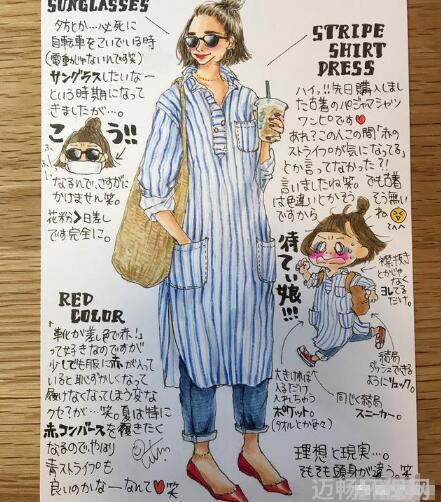 SUNGLASSES
夕方とか…必死に
自転車をこいでいる時
(電動じゃないれで笑)
サングラスしたいなー
という時期になって
きましたが…。
こう!!
なるんで、さすがに
かけません。笑
花粉>日差し
です完全に。
STRIPE
SHIRT
DRESS
ハイッ!!先日購入しました
古着のパジャマシャツ
ワンピです♥
あれ?この人この間「赤の
ストライプが気になってる」
とか言ってなかった?!
言いましたね笑。でも古着
は色違いとかそう
そう無い
ですから
ね
待てぃ娘!!!
襟抜き
とかじゃ
なく
ヨレてる
だけ。
結局
ダッシュできる
ように
リュック。
同じく結局
スニーカー。
大きければ
入るだけ
入れちゃう
ポケット。
(タオルとか色々)
RED
COLOR
「靴が差し色で赤!」
って好きなのですが
少しでも服に赤が入って
いると恥ずかしくなって
履けなくなってしまう変な
クセが…笑。夏は特に
赤コンバースを履きたく
なるので、やはり
青ストライプも
良いのかなーなんて♥笑
理想と現実…。
そもそも頭身が違う。笑
迈畅